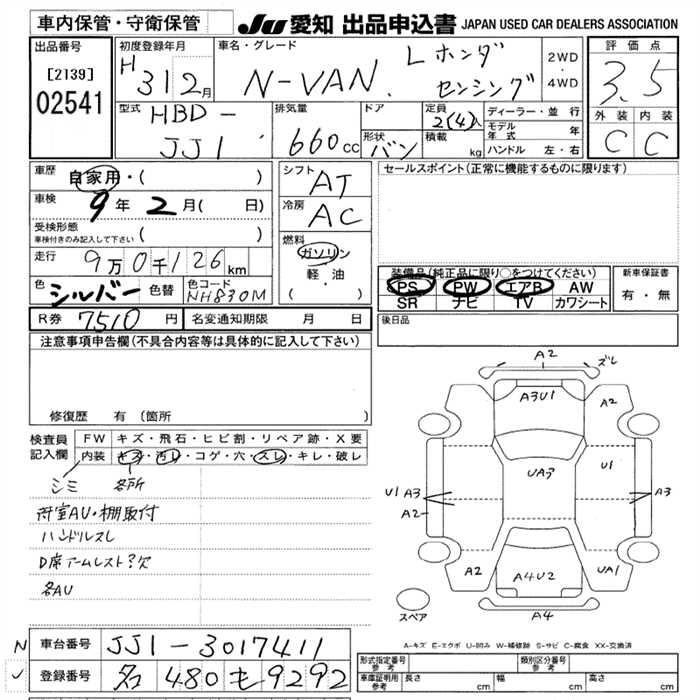 車内保管・守衛保管
JU 愛知 出品申込書 JAPAN USED CAR DEALERS ASSOCIATION
出品番号
[2139]
02541
初度登録年月
H 31 2月
車名・グレード
N-VAN. L ホンダ センシング
2WD
・
4WD
評価点
3.5
外装 内装
C C
型式
HBD-
JJ1
排気量
660cc
ドア
形状
バン
定員
2(4)人
積載
kg
ディーラー・並行
モデル年式 年
ハンドル 左・右
車歴
自家用・( )
車検
9年 2月( 日)
受検形態
車検付きのみ記入して下さい ( )
走行
9万0千126km
色
シルバー
色替
色コード
NH830M
R券 7510円 名変通知期限 月 日
シフト
AT
冷房
AC
燃料
ガソリン
軽・油
( )
セールスポイント(正常に機能するものに限ります)
装備品(純正品に限り○をつけてください)
PS PW エアB AW
SR ナビ TV カワシート
新車保証書
有・無
後日品
注意事項申告欄(不具合内容等は具体的に記入して下さい)
修復歴 有(箇所 )
検査員記入欄
FW キズ・飛石・ヒビ割・リペア跡・X要
内装 キズ・汚レ・コゲ・穴・スレ・キレ・破レ
シミ 各所
荷室AU・棚取付
ハンドルスレ
D席アームレスト?欠
各AU
A2 ズレ
A3U1
A2
UA3
U1
U1 A3
A2
A3
A2
A4U2
UA1
A4
スペア
A-キズ E-エクボ U-凹み W-補修跡 S-サビ C-腐食 XX-交換済
N
車台番号 JJ1-3017411
✓
登録番号 名 480 も 9292
形式指定番号
参考
類別区分番号
参考
車庫証明用
参考
長さ cm 幅 cm 高さ cm